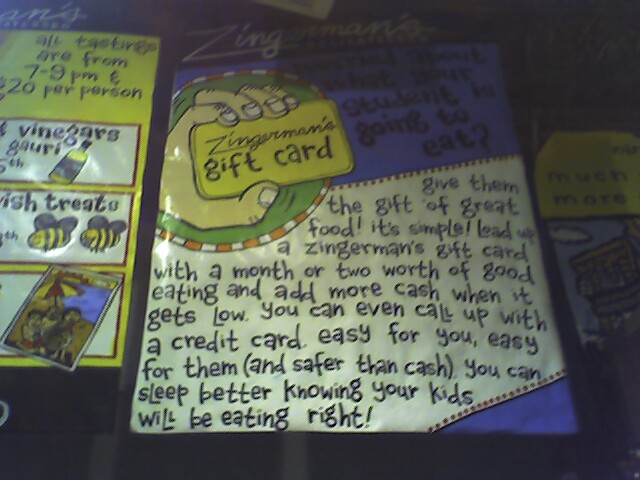 an's
all tastings
are from
7-9 pm &
$20 per person
vinegars
gauri
th
ish treats
th
Zingerman's
about
what your
student is
going to
eat?
Zingerman's
gift card
give them
the gift of great
food! it's simple! Load up
a zingerman's gift card
with a month or two worth of good
eating and add more cash when it
gets low. You can even call up with
a credit card. easy for you, easy
for them (and safer than cash). You can
sleep better knowing your kids
will be eating right!
much
more